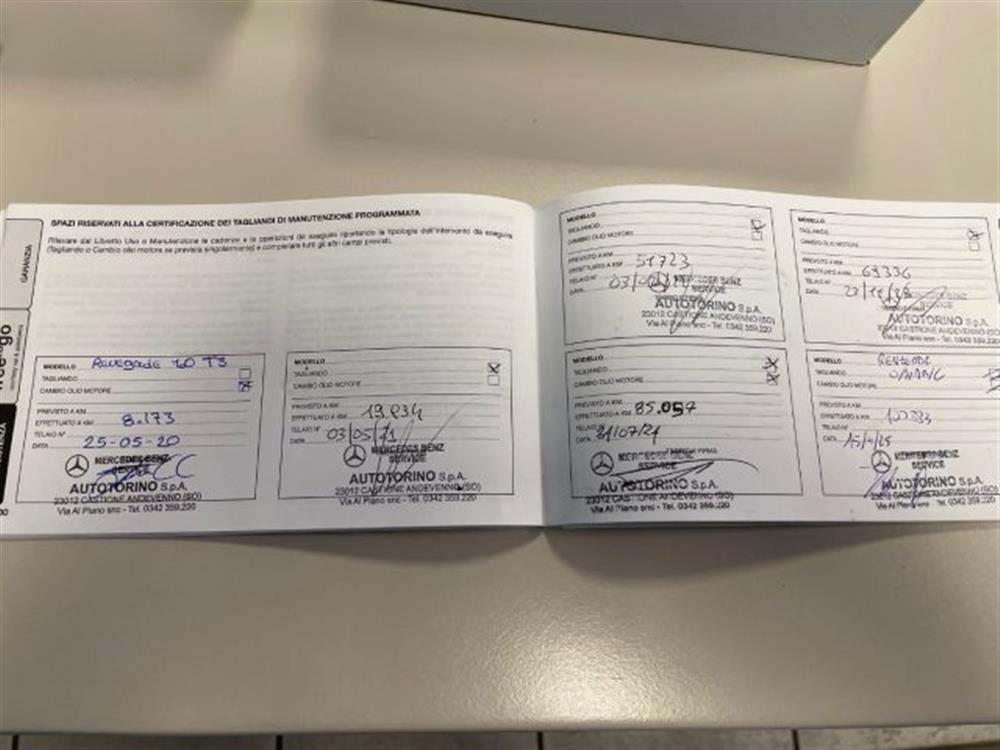 SPAZI RISERVATI ALLA CERTIFICAZIONE DEI TAGLIANDI DI MANUTENZIONE PROGRAMMATA
Rilevare dal Libretto Uso e Manutenzione le cadenze e le operazioni da eseguire riportando la tipologia dell'intervento da eseguire
(Tagliando o Cambio olio motore se prevista singolarmente) e completare tutti gli altri campi previsti.
GARANZIA
MODELLO Renegade 1.0 T3
TAGLIANDO
CAMBIO OLIO MOTORE
PREVISTO A KM
EFFETTUATO A KM 8.173
TELAIO N°
DATA 25-05-20
MERCEDES BENZ
SERVICE
AUTOTORINO S.p.A.
23012 CASTIONE ANDEVENNO (SO)
Via Al Piano snc - Tel. 0342 359.220
MODELLO
TAGLIANDO
CAMBIO OLIO MOTORE
PREVISTO A KM
EFFETTUATO A KM 19.834
TELAIO N°
DATA 03/05/21
MERCEDES BENZ
SERVICE
AUTOTORINO S.p.A.
23012 CASTIONE ANDEVENNO (SO)
Via Al Piano snc - Tel. 0342 359.220
MODELLO
TAGLIANDO
CAMBIO OLIO MOTORE
PREVISTO A KM
EFFETTUATO A KM 51723
TELAIO N°
DATA
MERCEDES BENZ
SERVICE
AUTOTORINO S.p.A.
23012 CASTIONE ANDEVENNO (SO)
Via Al Piano snc - Tel. 0342 359.220
MODELLO
TAGLIANDO
CAMBIO OLIO MOTORE
PREVISTO A KM
EFFETTUATO A KM 69336
TELAIO N°
DATA
AUTOTORINO S.p.A.
23012 CASTIONE ANDEVENNO (SO)
Via Al Piano snc - Tel. 0342 359.220
MODELLO
TAGLIANDO
CAMBIO OLIO MOTORE
PREVISTO A KM
EFFETTUATO A KM 85.057
TELAIO N°
DATA
MERCEDES BENZ
SERVICE
AUTOTORINO S.p.A.
23012 CASTIONE ANDEVENNO (SO)
Via Al Piano snc - Tel. 0342 359.220
MODELLO
TAGLIANDO
CAMBIO OLIO MOTORE
PREVISTO A KM
EFFETTUATO A KM
TELAIO N°
DATA
MERCEDES BENZ
SERVICE
AUTOTORINO S.p.A.
23012 CASTIONE ANDEVENNO (SO)
Via Al Piano snc - Tel. 0342 359.220